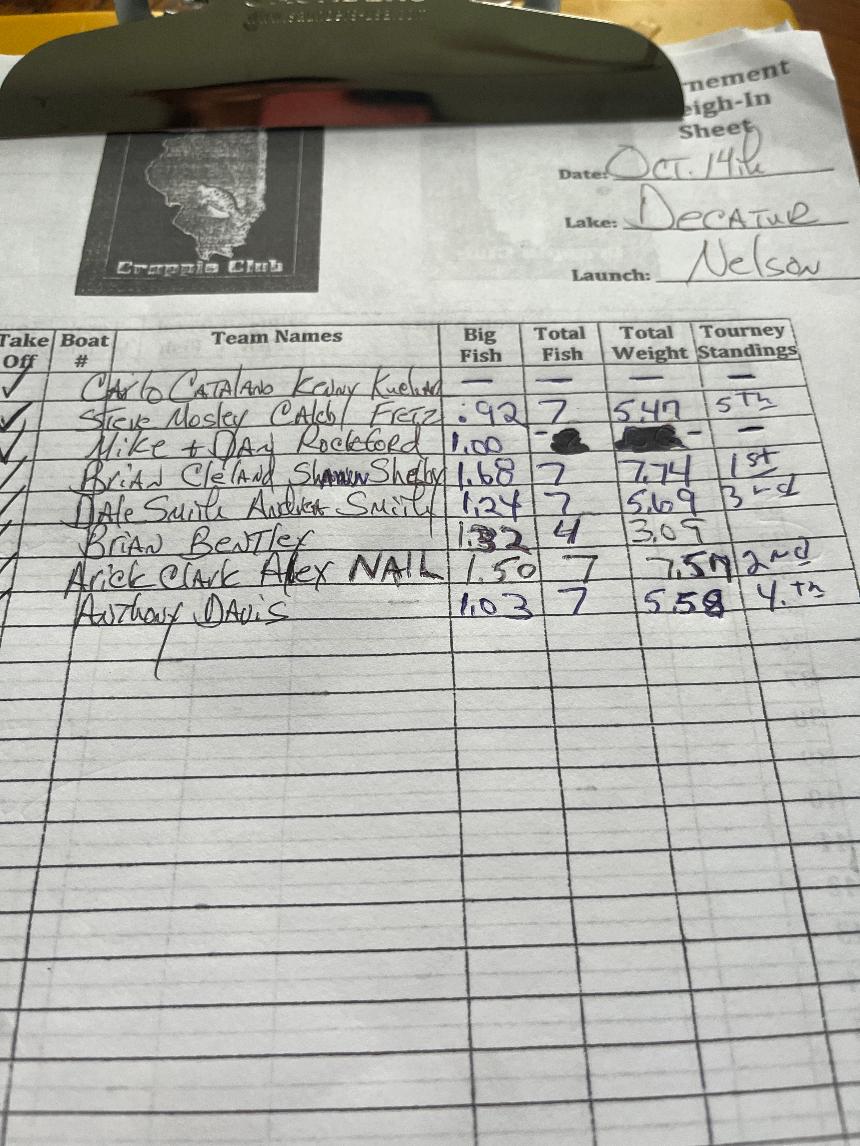 nement
eigh-In
Sheet
Date: Oct. 14th
Lake: DECATUR
Launch: Nelson
Crappie Club
Take Off Boat # Team Names Big Fish Total Fish Total Weight Tourney Standings
✓ Carlo CATALANO Kenny — — — —
✓ Steve Mosley CALEb FRETZ .92 7 5.47 5Th
✓ Mike + DAN Rockford 1.00 - - —
Brian Cleland Shannon Shelby 1.68 7 7.74 1st
DAle Smith Andrea Smith 1.24 7 5.69 3rd
BRIAN BENTley 1.32 4 3.09
Arick Clark Alex NAIL 1.50 7 7.57 2nd
Anthony DAVIS 1.03 7 5.58 4.Th